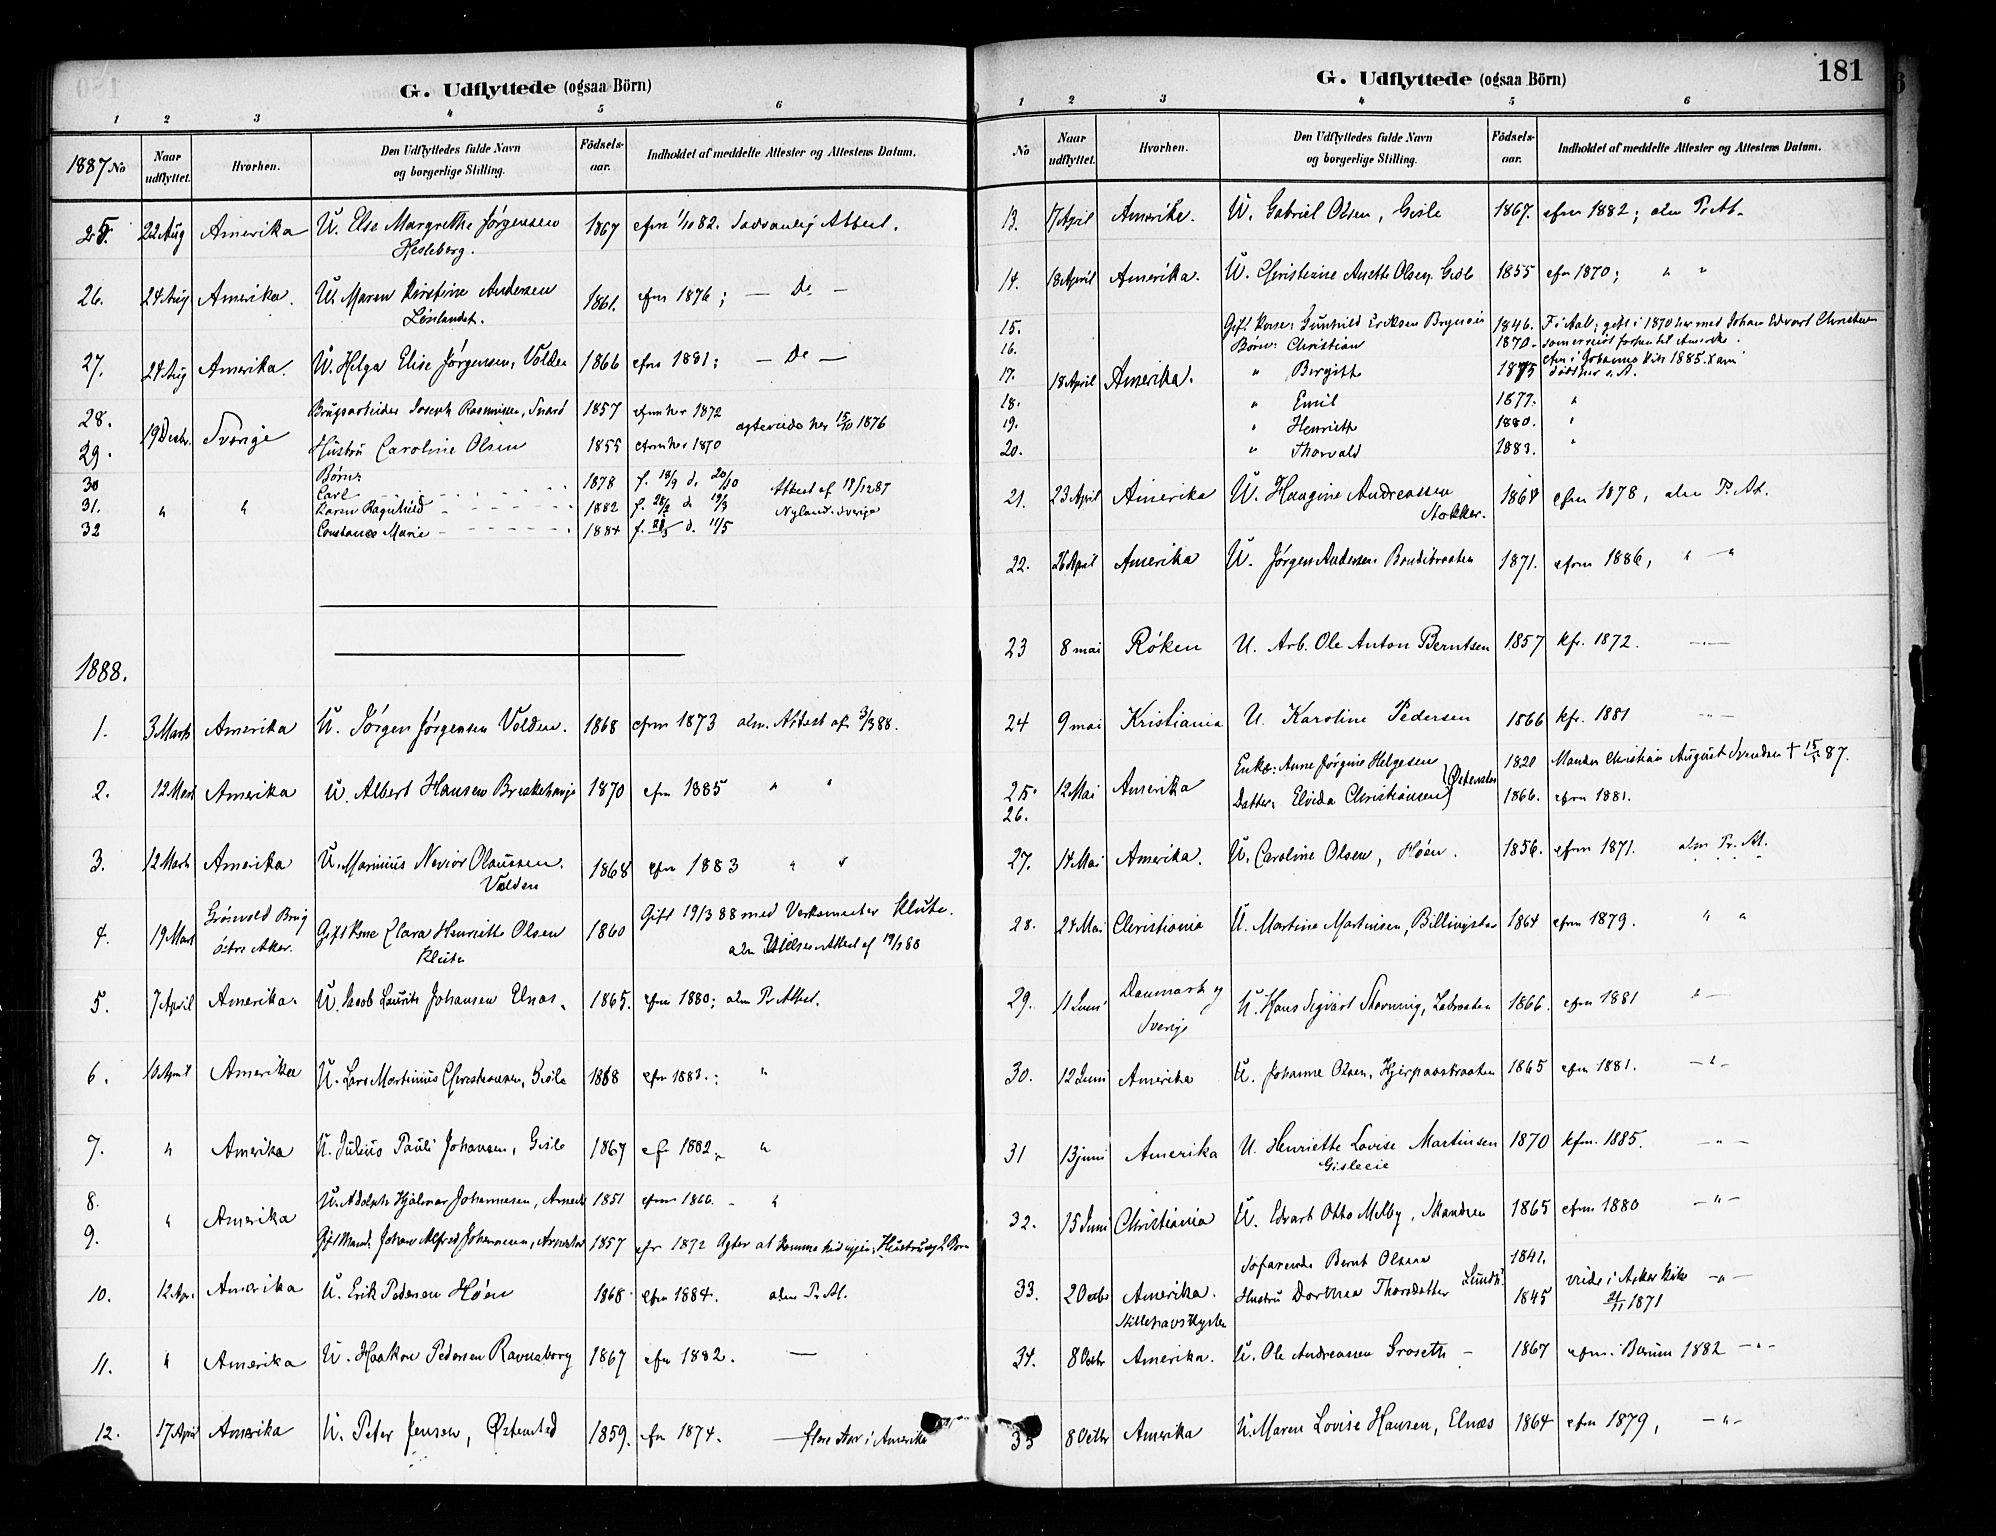 G. Udflyttede (ogsaa Börn)
1 2 3 4 5 6
1887 No
Naar udflyttet.
Hvorhen.
Den Udflyttedes fulde Navn og borgerlige Stilling.
Födsels-aar.
Indholdet af meddelte Attester og Attestens Datum.
25. 22 Aug Amerika U. Else Margrethe Jørgensen 1867 cfm 1/10 82. Sædvanlig Attest.
Hesleberg.
26. 24 Aug Amerika. U. Maren Kirstine Andersen 1861. cfm 1876; — Do —
Lønlandet.
27. 24 Aug Amerika. U. Helga Elise Jørgensen, Volden 1866 cfm 1881; — Do —
28. Brugsarbeider Joseph Rasmussen, 1857 cfm her 1872
19 Decbr. Sverige ægteviede her 15/10 1876
29. Hustru Caroline Olsen 1855 cfrm her 1870
Børn:
30 Carl 1878 f. 18/9 d. 20/10 Attest af 19/12 87
31. " " Karen Ragnhild 1882 f. d. 19/3 Nyland. Sverige
32 Constance Marie 1884 f. d. 11/5
1888.
1. 3 Marts Amerika U. Jørgen Jørgensen Volden. 1868 cfrm 1873 alm. Attest af 3/3 88.
2. 12 Mart Amerika U. Albert Hansen Breskehauge 1870 cfm 1885 " "
3. 12 Marts Amerika U. Marinius Nevior Olaussen. 1868 cfm 1883 " "
Volden
4. 19 Mart Grönvold Brug östre Aker. Gift Kone Clara Henriette Olsen 1860 Gift 19/3 88 med Verksmester Klute.
Klute alm Attest af 19/3 88
5. 7 April Amerika. U. Jacob Laurits Johansen Elnæs. 1865. cfm 1880; alm Pr. Attest.
6. 10 April Amerika U. Lars Martinius Christensen, Gisle 1868 cfm 1883.; "
7. " Amerika U. Julius Pauli Johansen, Gisle 1867 cf 1882, "
8. U. Adolph Hjalmar Johannesen, 1851 cfrm 1866. - "
" Amerika
9. Gift Mand. Johan Alfred Johannesen, 1857 cfr 1872 Agter at komme hid igjen; Hustru og 2 Børn
10. 12 Apr. Amerika U. Erik Pedersen Høen 1868 Cfm 1884. alm Pr. At.
11. " Amerika U. Haakon Pedersen Ravnsborg 1867 cfm 1882. —
12. 17 April Amerika U. Peter Jensen, Østenstad 1859. cfm 1874. — flere Aar i Amerika
G. Udflyttede (ogsaa Börn) 181
1 2 3 4 5 6
No
Naar udflyttet.
Hvorhen.
Den Udflyttedes fulde Navn og borgerlige Stilling.
Födsels-aar.
Indholdet af meddelte Attester og Attestens Datum.
13. 17 April Amerika. U. Gabriel Olsen, Gisle 1867. cfrm 1882; alm Pr. At.
14. 18 April Amerika. U. Christiane Anette Olsen, Gisle 1855 cfm 1870; " "
15. Gift Kone: Gunhild Eriksen 1846. F. i Aal; gift i 1870 her med Johan Edvart Christensen
16. Børn: Christian 1870. som er reist forhen til Amerika.
17. 18 April Amerika. " Bergitte 1875 cfm i Johannes Kirke 1885.
18. " Emil 1877. "
19. " Henriette 1880. "
20. " Thorvald 1883. "
21. 23 April Amerika U. Haagine Andreassen 1864 cfm 1878, alm Pr. At.
Stokker.
22. 26 April Amerika U. Jørgen Andersen Bondibraaten 1871. cfm 1886, " — "
23 8 mai Røken U. Arb. Ole Anton Berntsen 1857 kfr. 1872. — " —
24 9 mai Kristiania U. Karoline Pedersen 1866 kfr. 1881 — " —
25. 12 Mai Amerika Enke: Anne Jørgine Helgesen Østenstad 1820 Manden Christian August Svendsen † 15/ 87.
26. Datter: Elvida Christiansen 1866. cfm 1881.
27. 14 Mai Amerika. U. Caroline Olsen, Høen. 1856. cfrm 1871. alm Pr. At.
28. 24 Mai Christiania U. Martine Martinsen, Billingstad 1864 cfrm 1879. " "
29. 11 Juni Danmark og Sverige U. Hans Sigvart Thorning, Lobraaten 1866. cfm 1881 " —
30. 12 Juni Amerika U. Johanne Olsen, Hjerpaasbraaten 1865 cfm 1881. — " —
31 13 juni Amerika U. Henriette Lovise Martinsen 1870 kfm. 1885. — " —
Gisleeie
32. 15 Juni Christiania U. Edvart Otto Melby, 1865 cfrm 1880 — " —
33. 2 Octbr Amerika. Stillehavskysten Søfarende Bernt Olsen 1841.
Hustru Dorthea Thorsdatter Lunds. 1845 viede i Asker Kirke 21/11 1871 — " —
34. 8 Octbr Amerika. U. Ole Andreassen Groseth — 1867 cfm i Bærum 1882 — " —
35 8 Octbr Amerika U. Maren Lovise Hansen, Elnæs 1864 cfm 1879, — " —